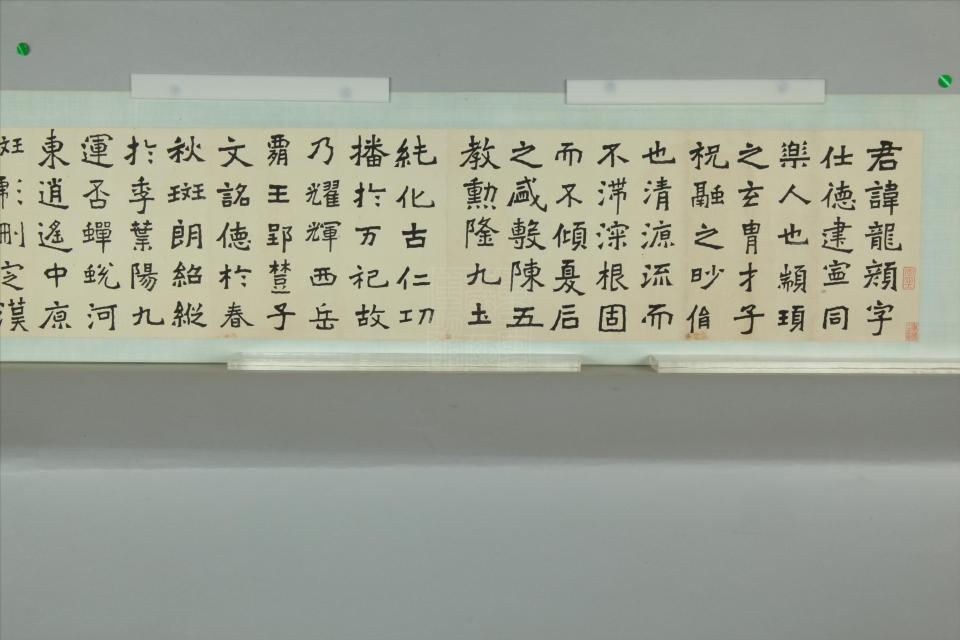 君諱龍顏字
仕德建寧同
樂人也顓頊
之玄胄才子
祝融之眇胤
也清源流而
不滯深根固
而不傾夏后
之盛敷陳五
教勳隆九土
純化古仁功
播於万祀故
乃耀輝西岳
霸王郢楚子
文詺德於春
秋斑朗紹縱
於季葉陽九
運否蟬蛻河
東逍遙中原
班彪刪定漢